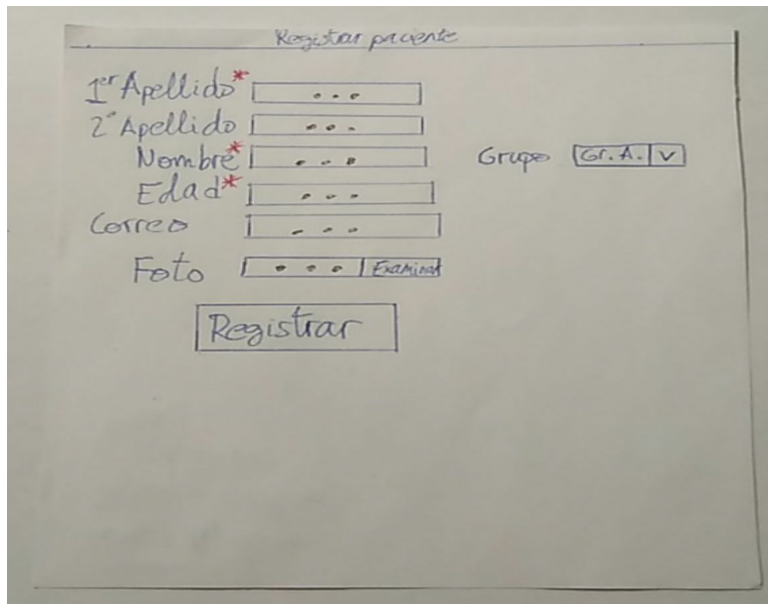 Registrar paciente
1er Apellido* ...
2º Apellido ...
Nombre* ... Grupo Gr. A. V
Edad* ...
Correo ...
Foto ... Examinar
Registrar